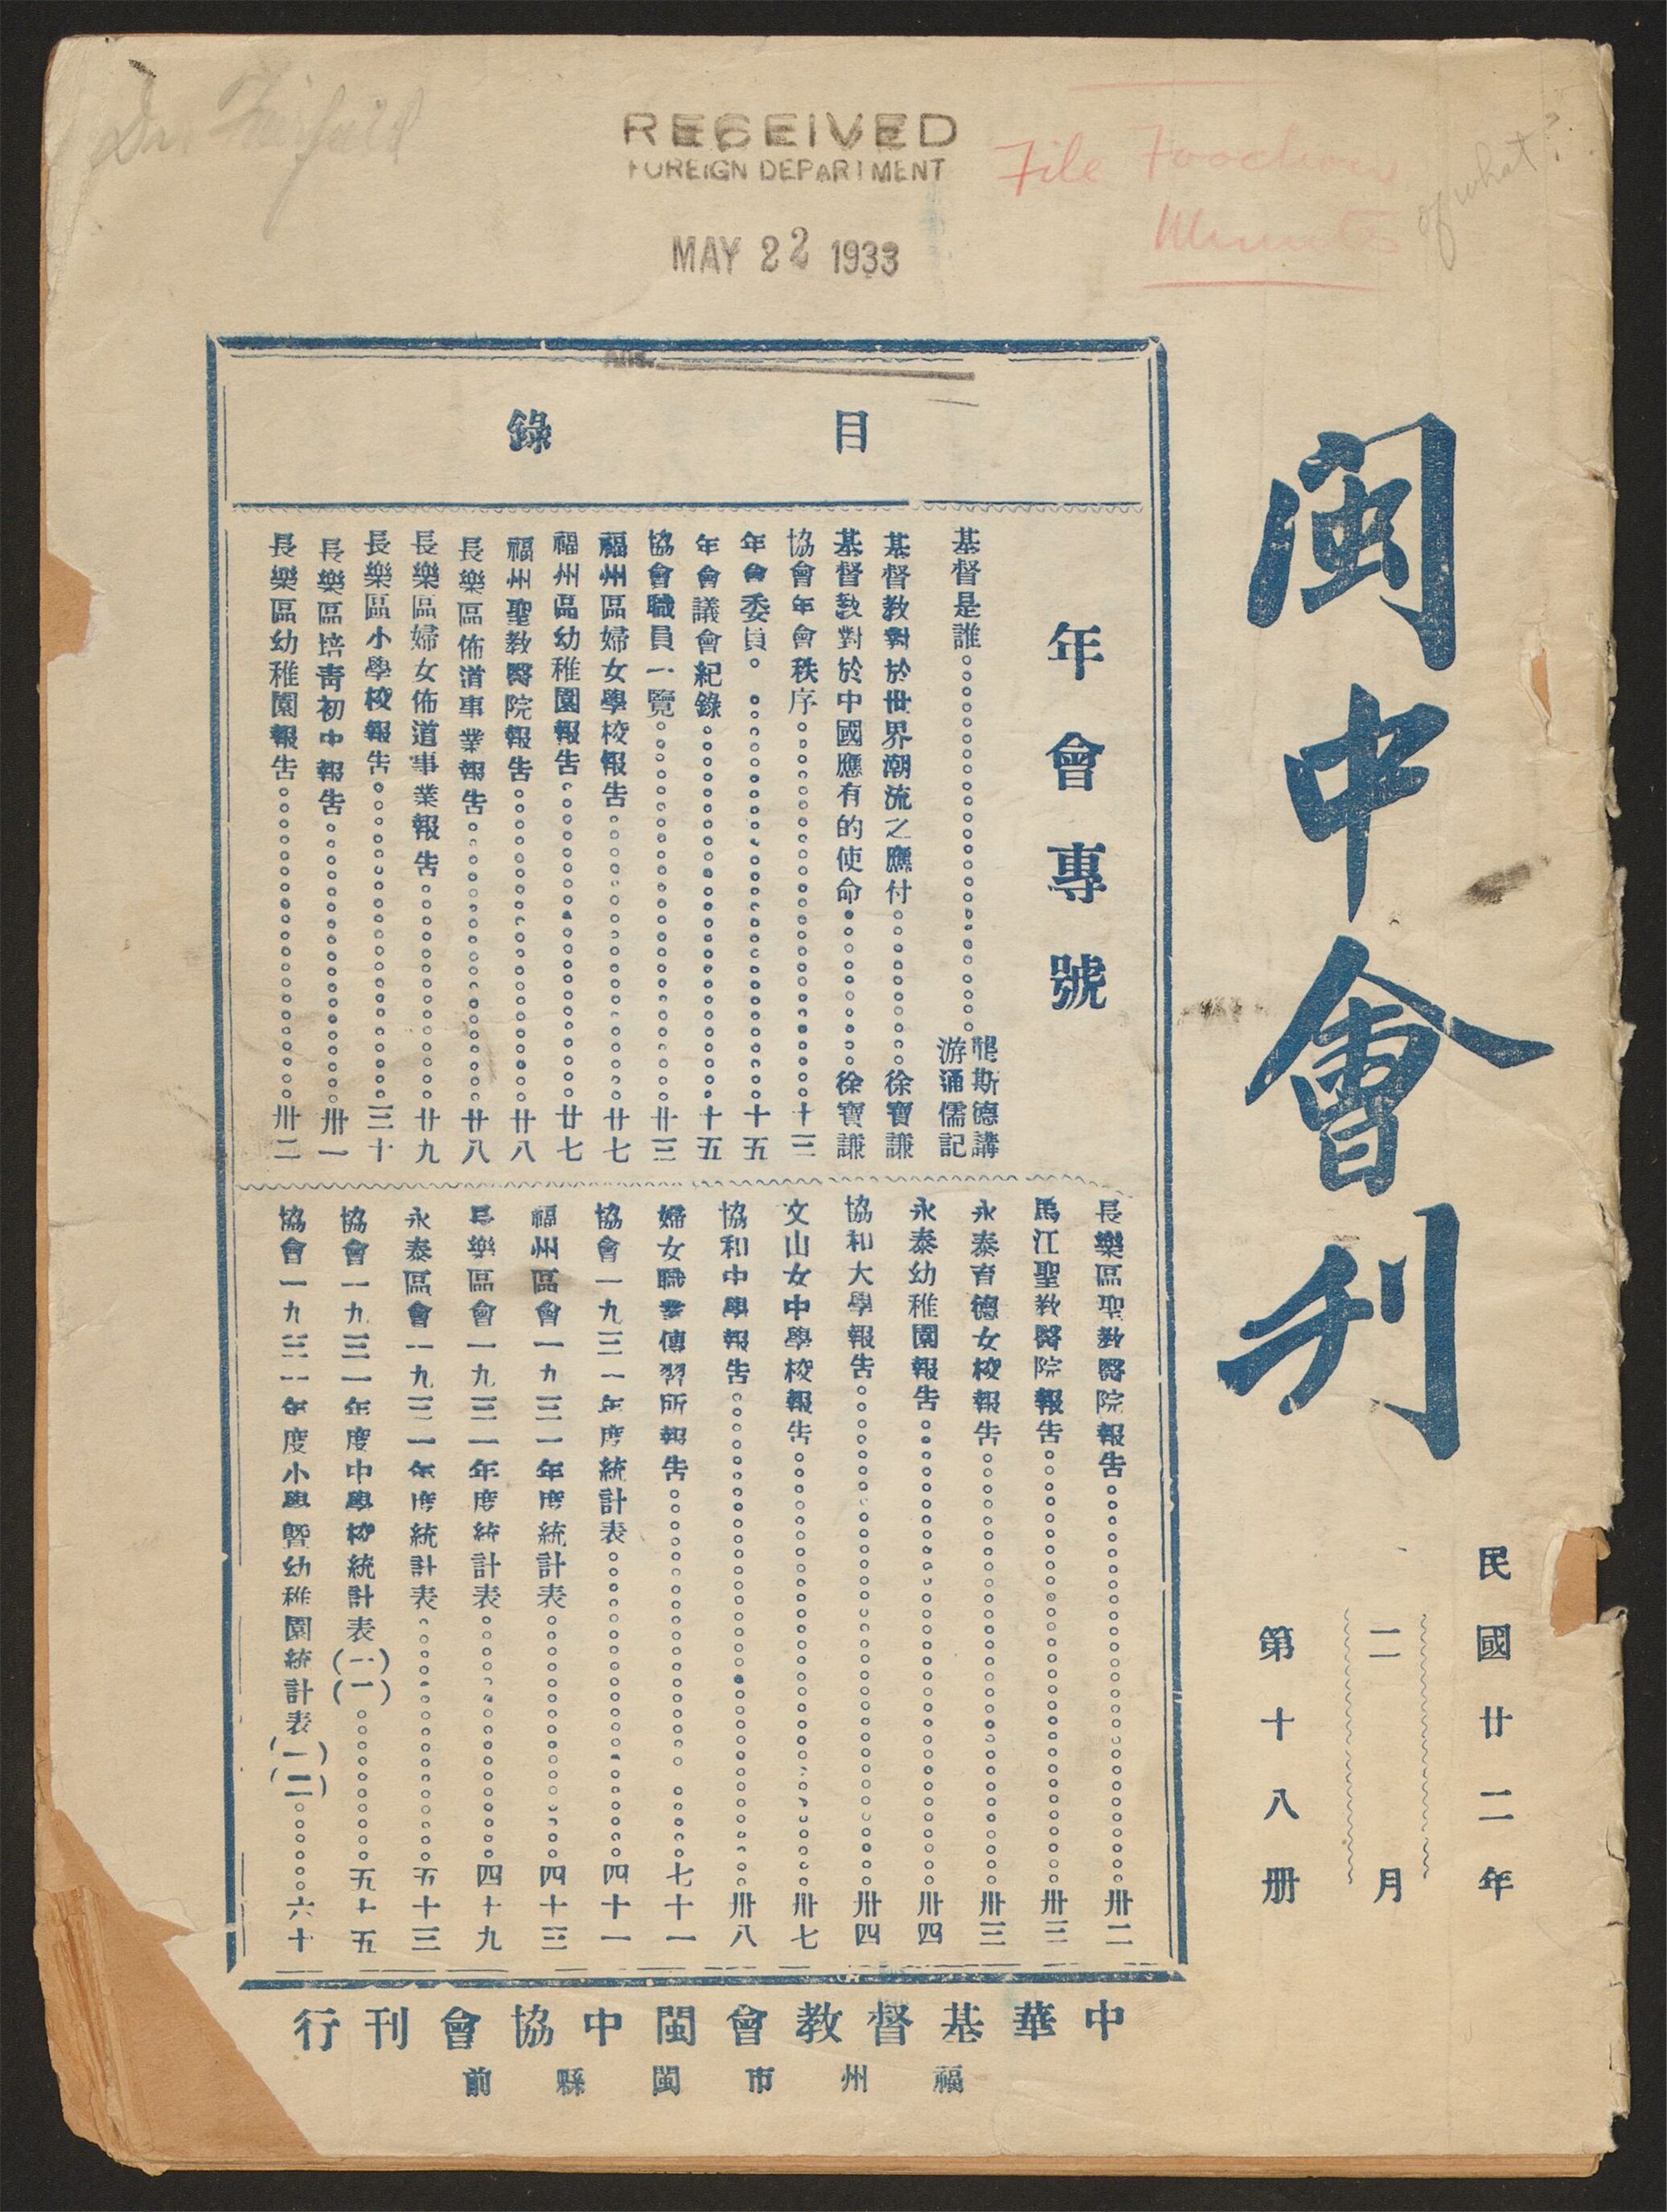 RECEIVED
FOREIGN DEPARTMENT
MAY 22 1933
File Foochow
Minutes
of what?
Dr.
Ans.
閩中會刊
民國廿二年
二月
第十八册
目錄
年會專號
基督是誰 龔斯德講 游通儒記
基督教對於世界潮流之應付 徐寶謙
基督教對於中國應有的使命 徐寶謙
協會年會秩序 十三
年會委員 十五
年會議會紀錄 十五
協會職員一覽 廿三
福州區婦女學校報告 廿七
福州區幼稚園報告 廿七
福州聖教醫院報告 廿八
長樂區佈道事業報告 廿八
長樂區婦女佈道事業報告 廿九
長樂區小學校報告 三十
長樂區培青初中報告 卅一
長樂區幼稚園報告 卅二
長樂區聖教醫院報告 卅二
馬江聖教醫院報告 卅三
永泰育德女校報告 卅三
永泰幼稚園報告 卅四
協和大學報告 卅四
文山女中學校報告 卅七
協和中學報告 卅八
婦女職業傳習所報告 七十一
協會一九三一年度統計表 四十一
福州區會一九三一年度統計表 四十三
長樂區會一九三一年度統計表 四十九
永泰區會一九三一年度統計表 五十三
協會一九三一年度中學校統計表(一)(一) 五十五
協會一九三一年度小學暨幼稚園統計表(一)(二) 六十
中華基督教會閩中協會刊行
福州市閩縣前